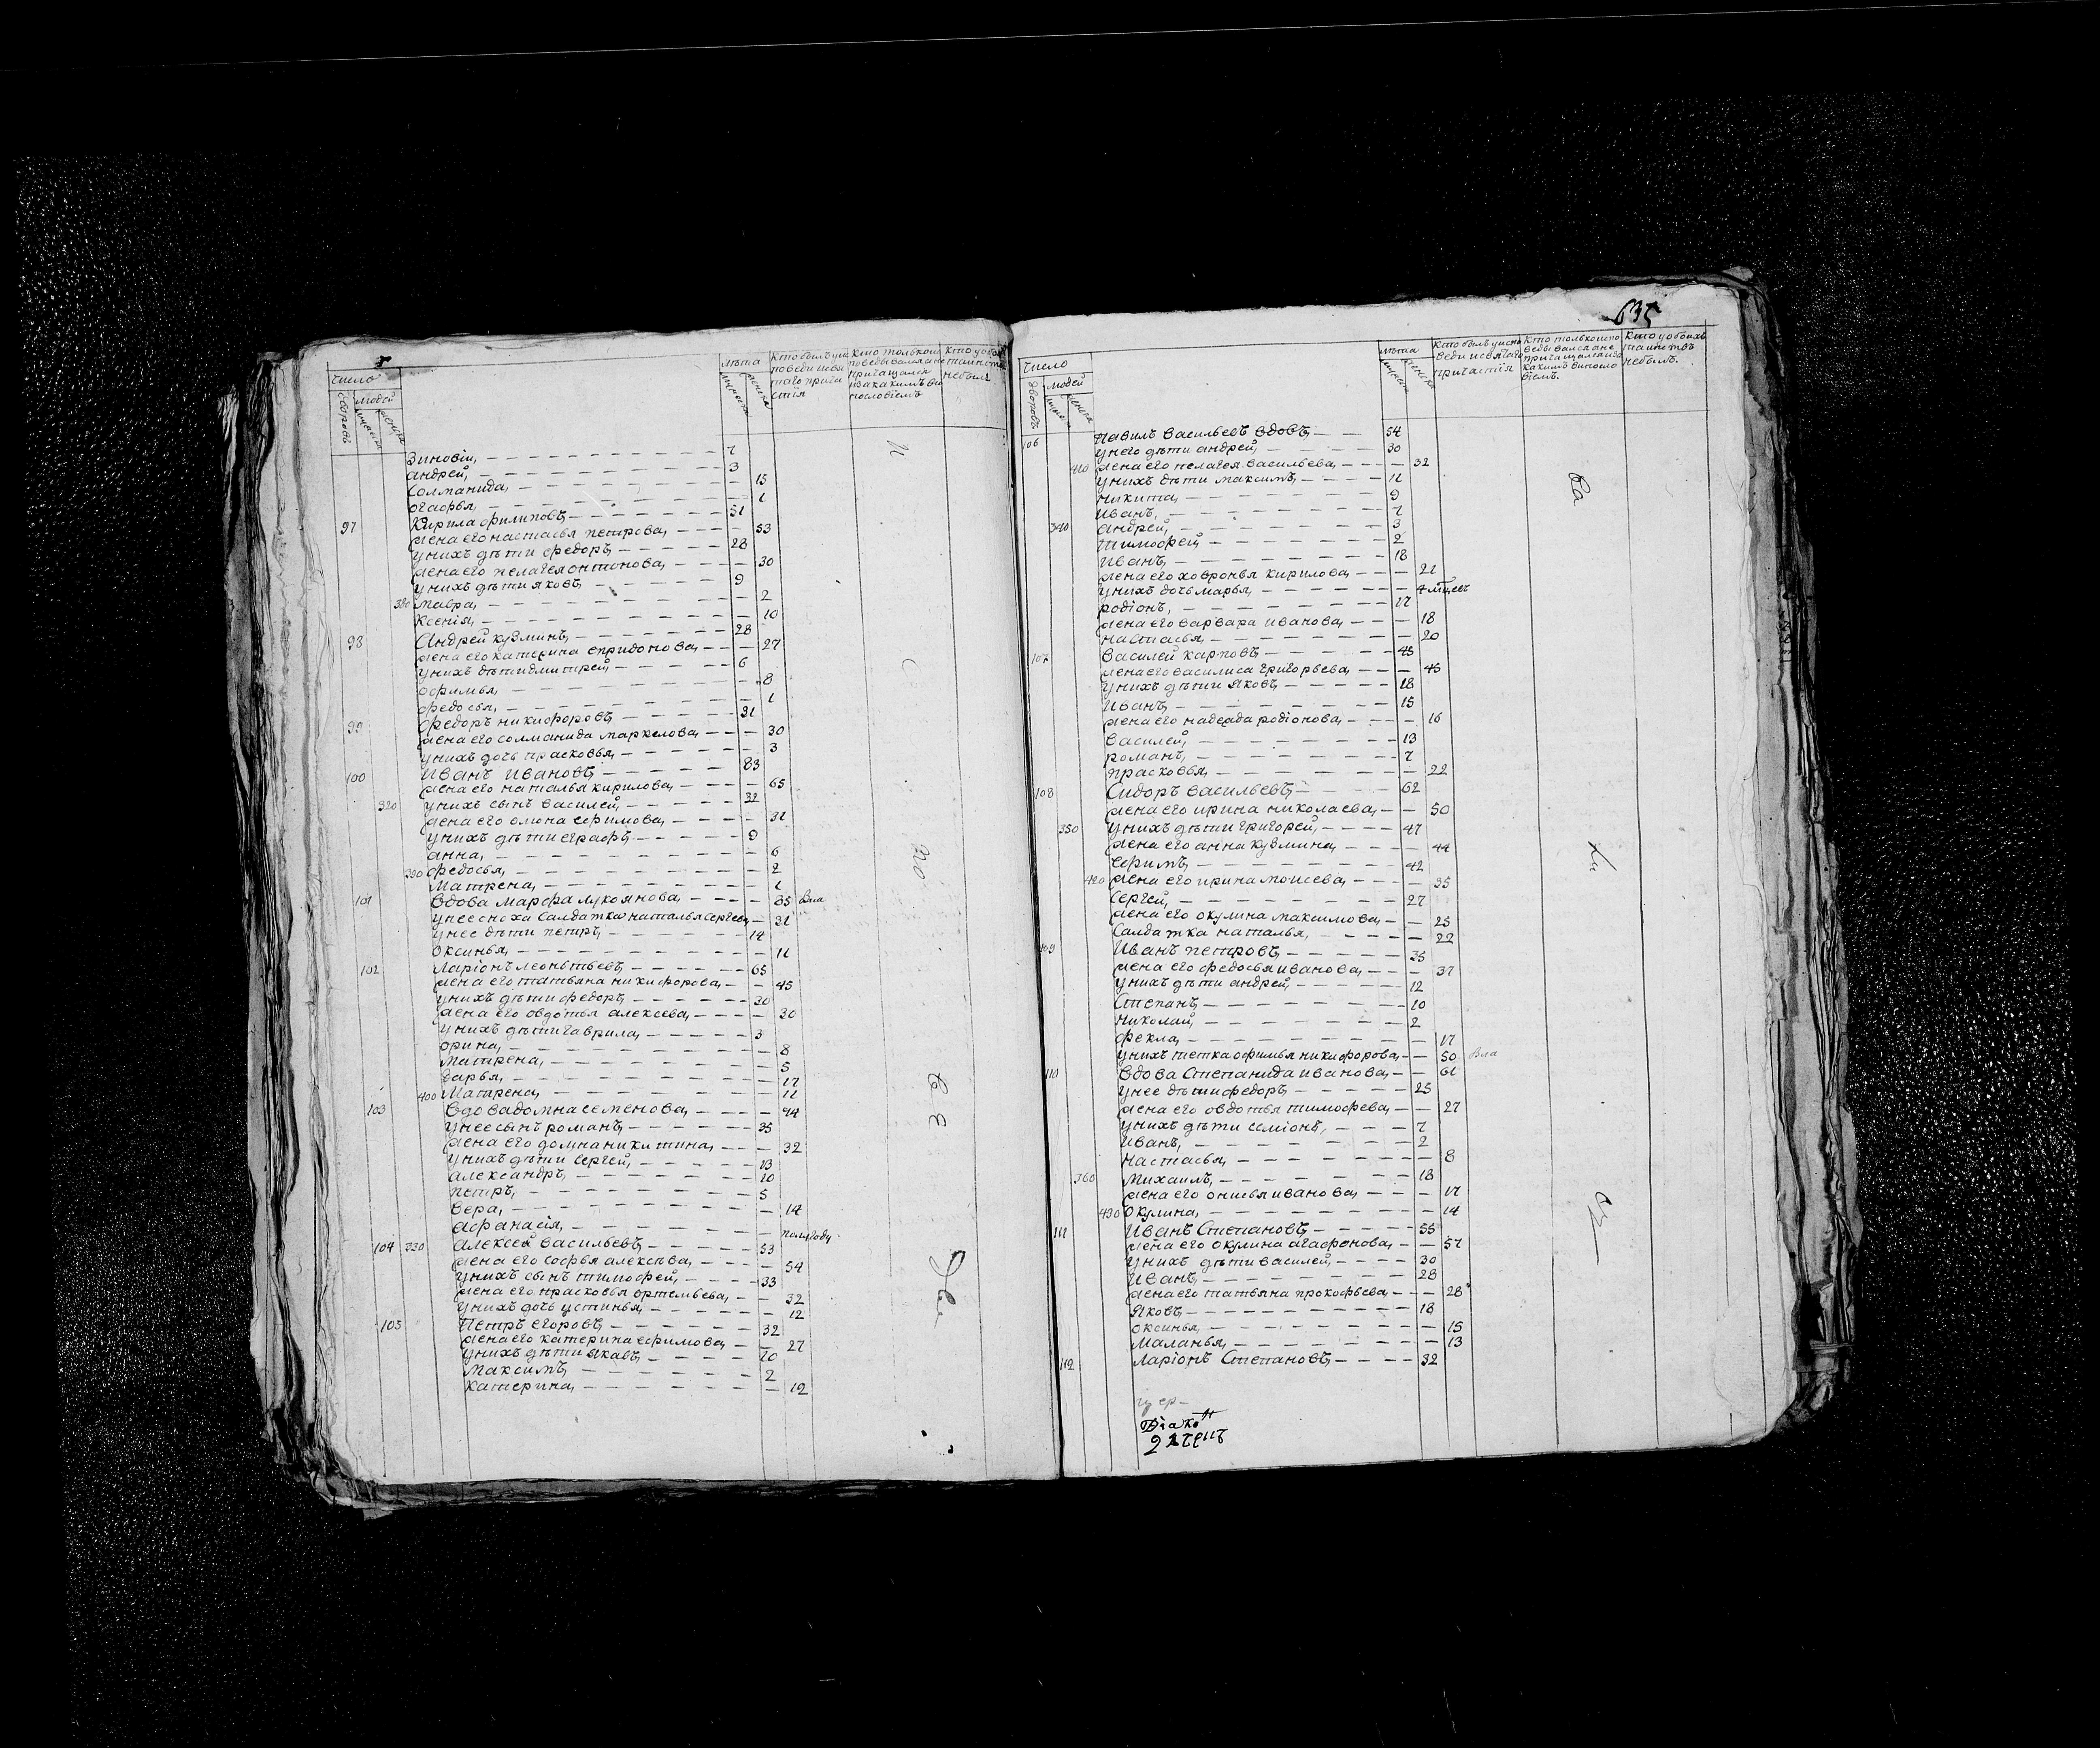 Число
дворовъ
людей
мужска
женска
лѣта
мужска
женска
Кто былъ уис
поведи исвя
таго прича
стія
Кто толькоис
поведывалсяане
причащался
изакакимъ ви
нословіемъ
Кто уобои
таинств
небылъ
Зиновіи, 7
андрей, 3
Солманида, 15
огафья, 1
97 Кирила филиповъ 51
жена его настасья петрова, 53
унихъ дѣти федоръ 28
жена его пелагея онтонова, 30
унихъ дѣти яковъ 9
380 мавра, 2
Ксенія, 10
98 Андрей кузминъ 28
жена его катерина спридонова, 27
унихъ дѣти дмитрей 6
офимья, 8
федосья, 1
99 федоръ никифоровъ 31
жена его солманида маркелова, 30
унихъ дочь прасковья, 3
100 Иванъ Ивановъ 83
жена его наталья кирилова, 65
320 унихъ сынъ василей, 32
жена его олиона ефимова, 31
унихъ дѣти еграфъ 9
анна, 6
390 федосья, 2
Матрена, 1
101 вдова Марфа лукоянова, 85 Вла
унее сноха салдатка наталья сергеева 31
унее дѣти петръ 14
Оксинья, 11
102 Ларіонъ леонтьевъ 65
жена его татьяна никифорова, 45
унихъ дѣти федоръ 30
жена его овдотья алексева, 30
унихъ дѣти гаврила, 3
орина, 8
Матрена, 5
дарья, 17
400 Матрена, 11
103 Вдова домна семенова, 44
унее сынъ романъ 35
жена его домна никитина, 32
унихъ дѣти Сергей, 13
александръ 10
петръ 5
вера, 14
афанасія, полугоду
104 330 алексей васильевъ 53
жена его софья алексѣва, 54
унихъ сынъ тимофей, 33
жена его прасковья ортемьева, 32
унихъ дочь устинья, 12
105 Петръ егоровъ 32
жена его катерина ефимова, 27
унихъ дѣти яковъ 10
максимъ 2
катерина, 12
635
Число
дворовъ
людей
лѣта
женска
Кто былъ уиспо
веди исвятаго
причастія
Кто толькоиспо
ведывалсяане
причащалсяиза
какимъ винсло
віемъ.
Кто уобоихъ
таинствъ
небылъ.
106 Павилъ васильевъ вдовъ 54
унего дѣти андрей, 30
410 жена его пелагея васильева, 32
унихъ дѣти максимъ 11
никита, 9
иванъ, 7
340 андрей, 3
тимофей 2
иванъ 18
жена его ховронья кирилова, 21
унихъ дочь марья, 4 мцсъ
родіонъ, 17
жена его варвара иванова, 18
настасья, 20
107 василей карповъ 45
жена его василиса григорьева, 45
унихъ дѣти яковъ 18
иванъ 15
жена его надежда родіонова, 16
василей, 13
романъ, 7
прасковья, 22
108 Сидоръ васильевъ 62
жена его ирина николаева, 50
350 унихъ дѣти григорей, 47
жена его анна кузмина, 44
ефимъ 42
420 жена его ирина моисева, 35
сергей, 27
жена его окулина максимова, 25
салдатка наталья, 22
109 Иванъ петровъ 35
жена его федосья иванова, 37
унихъ дѣти андрей, 12
степанъ 10
николай, 2
фекла, 17
унихъ тетка офимья никифорова, 50 Вла
110 вдова степанида иванова, 61
унее дѣти федоръ 25
жена его овдотья тимофева, 27
унихъ дѣти семіонъ, 7
иванъ, 2
настасья, 8
360 михаилъ 18
жена его онисья иванова, 17
430 Окулина, 14
111 Иванъ степановъ 55
жена его окулина агафонова, 57
унихъ дѣти василей, 30
иванъ 28
жена его татьяна прокофьева, 28
яковъ 18
оксинья, 15
маланья, 13
112 Ларіонъ степановъ 32